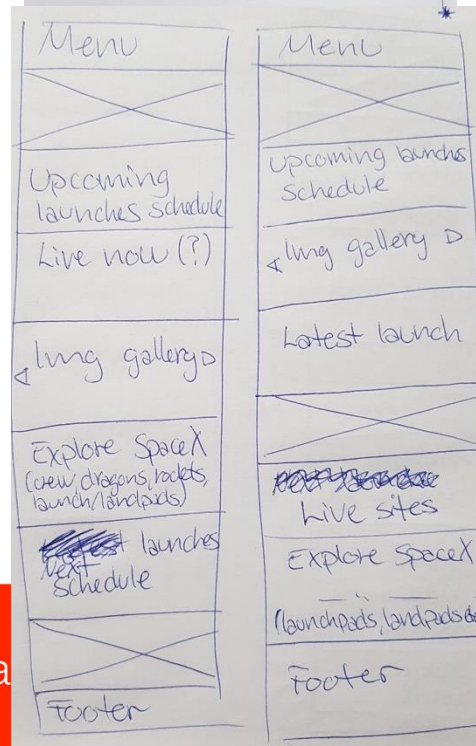 Menu
Upcoming
launches schedule
Live now (?)
Img gallery
Explore SpaceX
(crew, dragons, rockets,
launch/landpads)
launches
Next
schedule
Footer
Menu
Upcoming launches
schedule
Img gallery
Latest launch
Live sites
Explore SpaceX
(launchpads, landpads
Footer
a